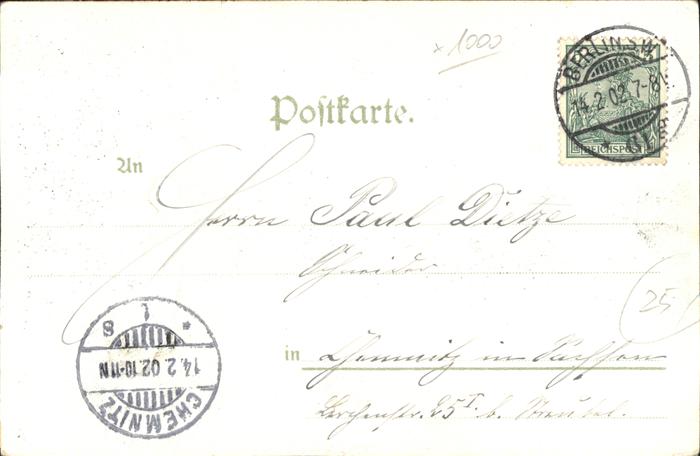 x 1000
BERLIN S.W.
14.2.02.7-8
REICHSPOST
Postkarte.
An
Herrn Paul Dietze
Schneider
25
in Chemnitz in Sachsen
25 I b. Streubel.
CHEMNITZ
14.2.02.10-11N
1
* 8